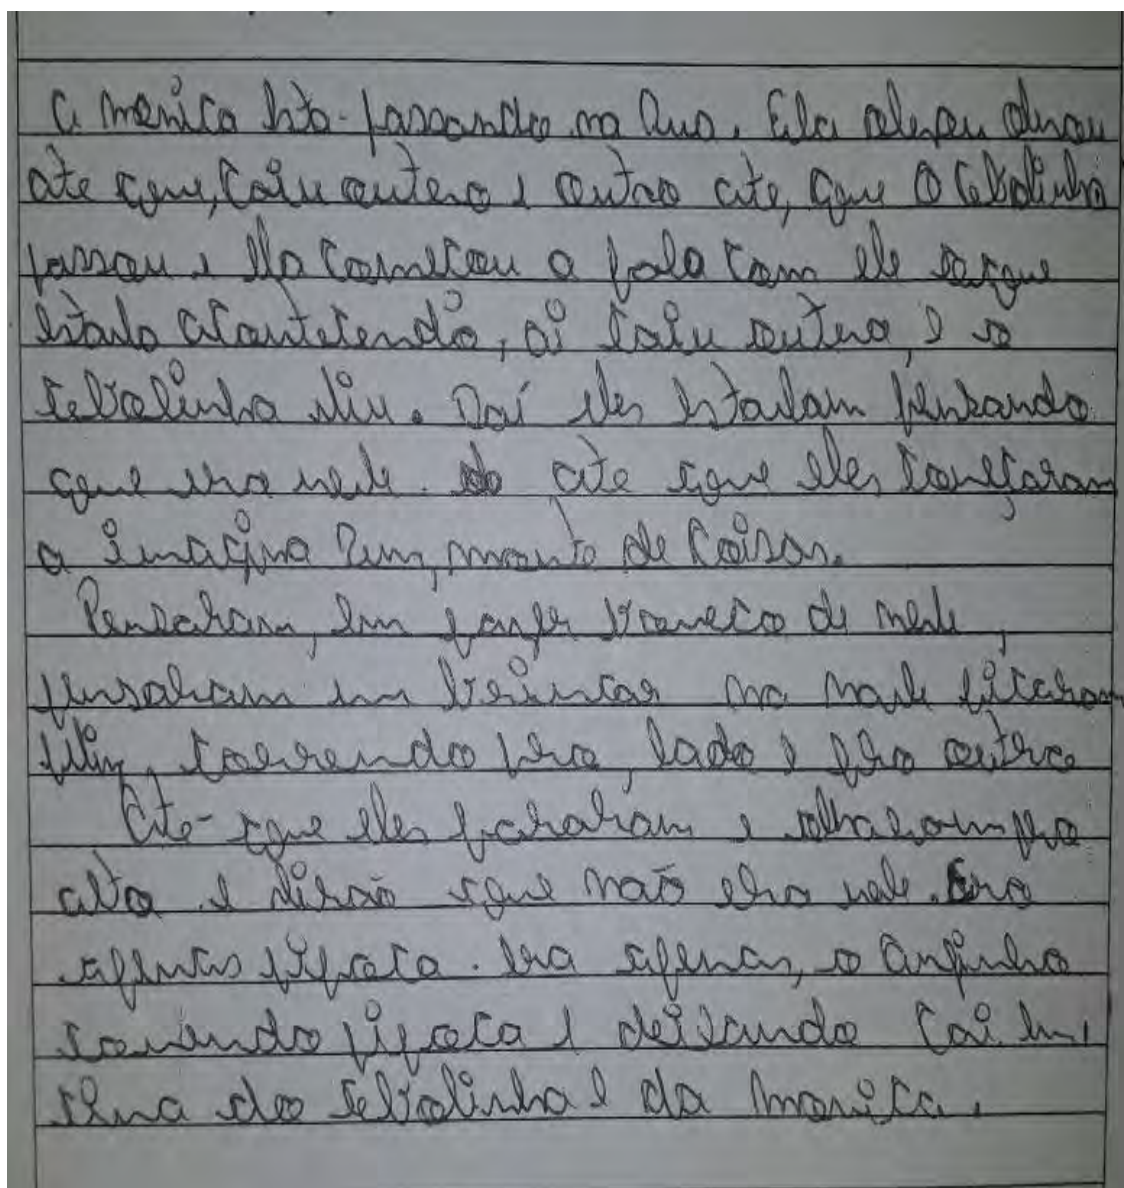 A monica Esta passando na Rua. Ela olhou
ate que, Caiu outero e outro ate, que O Cebolinha
passou e Ela começou a fala com ele o que
Estava acontecendo, ai caiu outero, e o
cebolinha viu. Daí eles Estavam pensando
que era neve. ate que eles começaram
a imagina um, monte de Coisas.
Pensaram, Em fazer boneco de neve,
pensaram em brincar na neve ficaram
correndo pra, lado e pro outro
Ate que eles pararam e olharam pro
alto e não era neve. Era
apenas pipoca. Era apenas, o Anjinho
comendo pipoca e deixando Cai Em,
sima do cebolinha e da Monica.